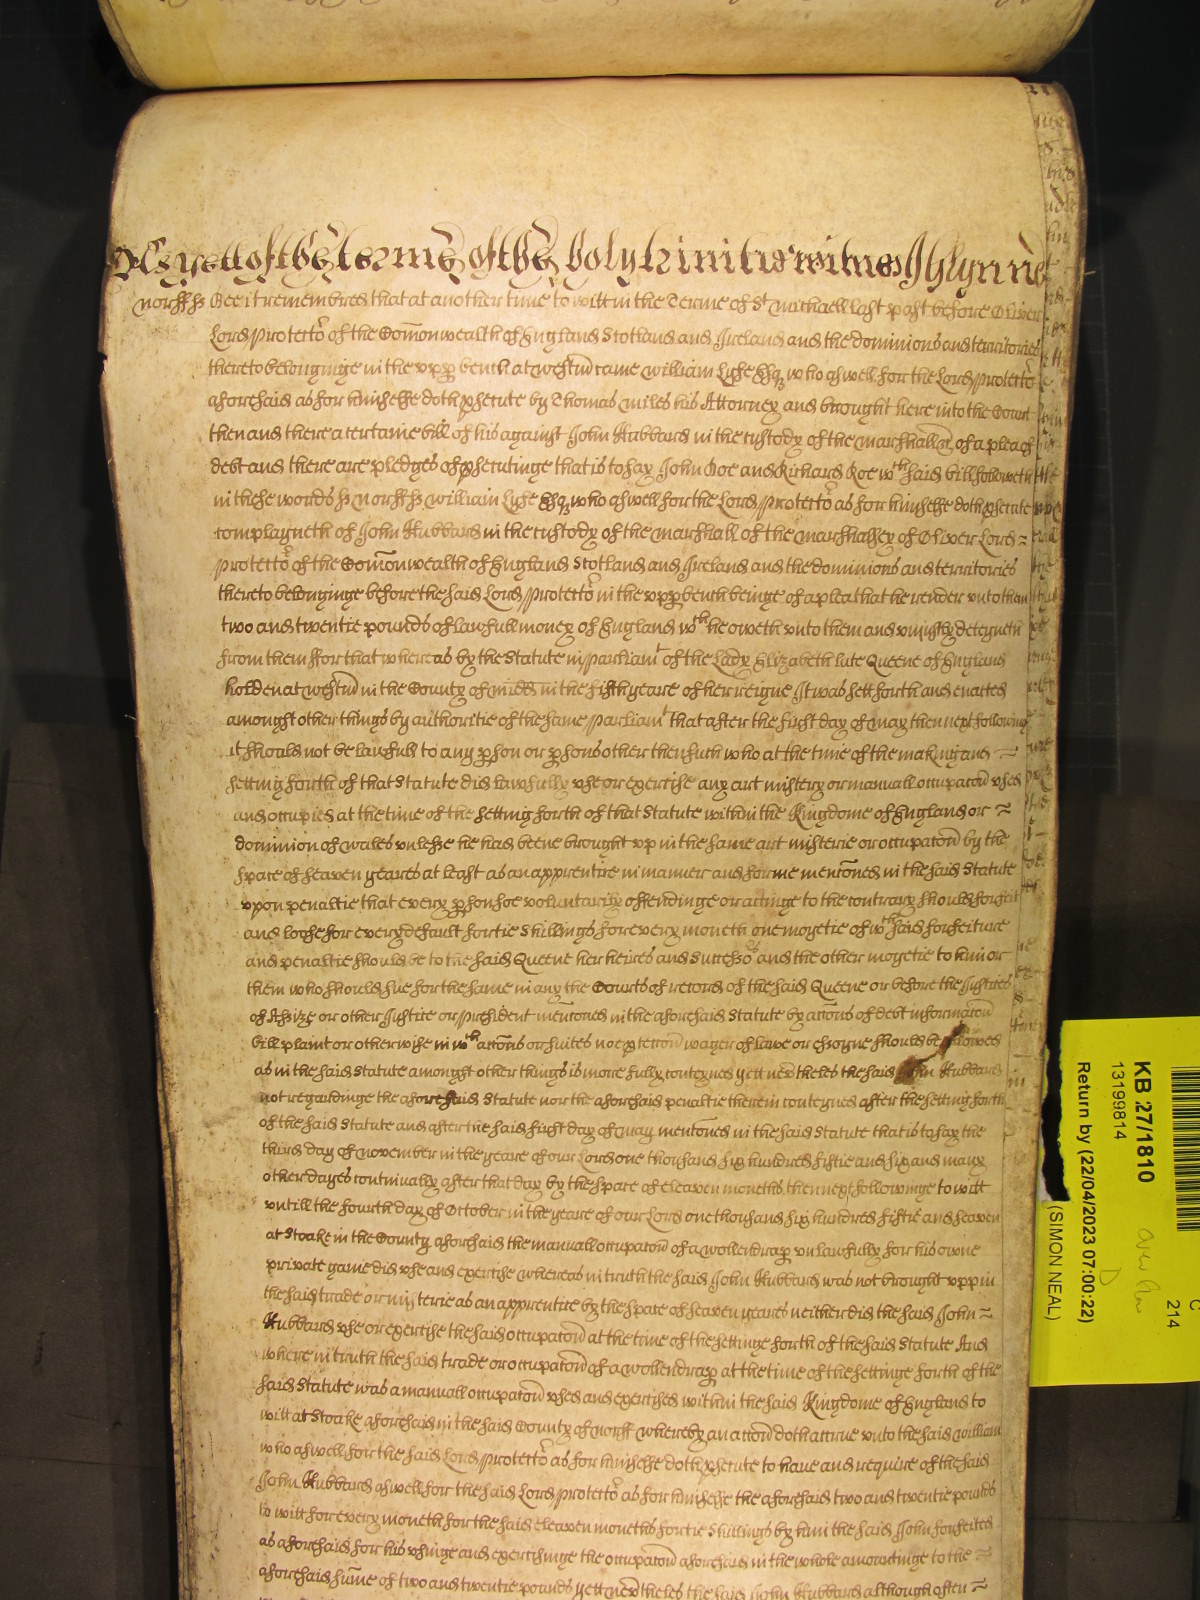 As yett of the terme of the holy trinitie witnes J Glynn
Norff ss Bee it remembred that at another time to witt in the Terme of St Michaell last past before Oliver
Lord Protector of the Com̃onwealth of England Scotland and Ireland and the dominions and territories
thereto belonginge in the upp bench at Westm̃ came William Lyse Esqr who aswell for the Lord Protector
aforesaid as for himselfe doth psecute by Thomas Miles his Attorney and brought here into the Court
then and there a certaine bill of his against John Hubbard in the custody of the marshall &c of a plea of
debt and there are pledges of psecutinge that is to say John Doe and Richard Roe wch said bill followeth
in these words ss Norff ss William Lyse Esqr who aswell for the Lord Protector as for himselfe doth psecute
complayneth of John Hubbard in the custody of the marshall of the marshalsey of Oliver Lord
Protector of the Com̃onwealth of England Scotland and Ireland and the dominions and territories
thereto belonginge before the said Lord Protector in the upp bench beinge of a plea that he render unto them
two and twentie pounds of lawfull money of England wch he oweth unto them and uniustly deteyneth
from them ffor that whereas by the Statute in Parliamt of the Lady Elizabeth late Queene of England
holden at Westm̃ in the County of Midd in the fifth yeare of her reigne It was sett forth and enacted
amongst other things by authoritie of the same Parliamt that after the first day of May then next following
it should not be lawfull to any pson or psons other then such who at the time of the making and
setting forth of that Statute did lawfully use or exercise any art mistery or manuall occupacon used
and occupied at the time of the setting forth of that Statute within the Kingdome of England or
dominion of Wales unlesse he had beene brought up in the same art misterie or occupacon by the
space of seaven yeares at least as an apprentice in manner and forme menc̃oned in the said Statute
upon penaltie that every pson soe voluntarily offendinge or actinge to the contrary should forfeit
and loose for every default fortie shillings for every moneth one moyetie of wch said forfeiture
and penaltie should be to the said Queene her heires and successors and the other moyetie to him or
them who should sue for the same in any the Courts of record of the said Queene or before the Justices
of Assize or other Justice or President menc̃oned in the aforesaid Statute by acc̃ons of debt informac̃on
bill plaint or otherwise in wch acc̃ons or suites noe ptecc̃on wager of lawe or essoyne should be allowed
as in the said Statute amongst other things is more fully conteyned yett nev̄theles the said John Hubbard
not regardinge the aforesaid Statute nor the aforesaid penaltie therein conteyned after the setting forth
of the said Statute and after the said first day of May menc̃oned in the said Statute that is to say the
third day of November in the yeare of our Lord one thousand six hundred fiftie and six and many
other dayes continually after that day by the space of eleaven moneths then next followinge to witt
untill the fourth day of October in the yeare of our Lord one thousand six hundred fiftie and seaven
at Stoake in the County aforesaid the manuall occupac̃on of a wollendrap unlawfully for his owne
private gaine did use and exercise whereas in truth the said John Hubbard was not brought upp in
the said trade or misterie as an apprentice by the space of seaven yeares neither did the said John
Hubbard use or exercise the said occupac̃on at the time of the settinge forth of the said Statute And
where in truth the said trade or occupac̃on of a wollendrap at the time of the settinge forth of the
said Statute was a manuall occupac̃on used and exercised within the said Kingdome of England to
witt at Stoake aforesaid in the said County of Norff whereby an acc̃on doth accrue unto the said William
who aswell for the said Lord Protector as for himselfe doth psecute to have and require of the said
John Hubbard aswell for the said Lord Protector as for himselfe the aforesaid two and twentie pounds
to witt for every moneth for the said eleaven moneths fortie shillings by him the said John forfeited
as aforesaid for his usinge and exercisinge the occupac̃on aforesaid in the whole amountinge to the
aforesaid sum̃e of two and twentie pounds yett nev̄theles the said John Hubbard although often
KB 27/1810
13199814
Return by (22/04/2023 07:00:22)
(SIMON NEAL)
214